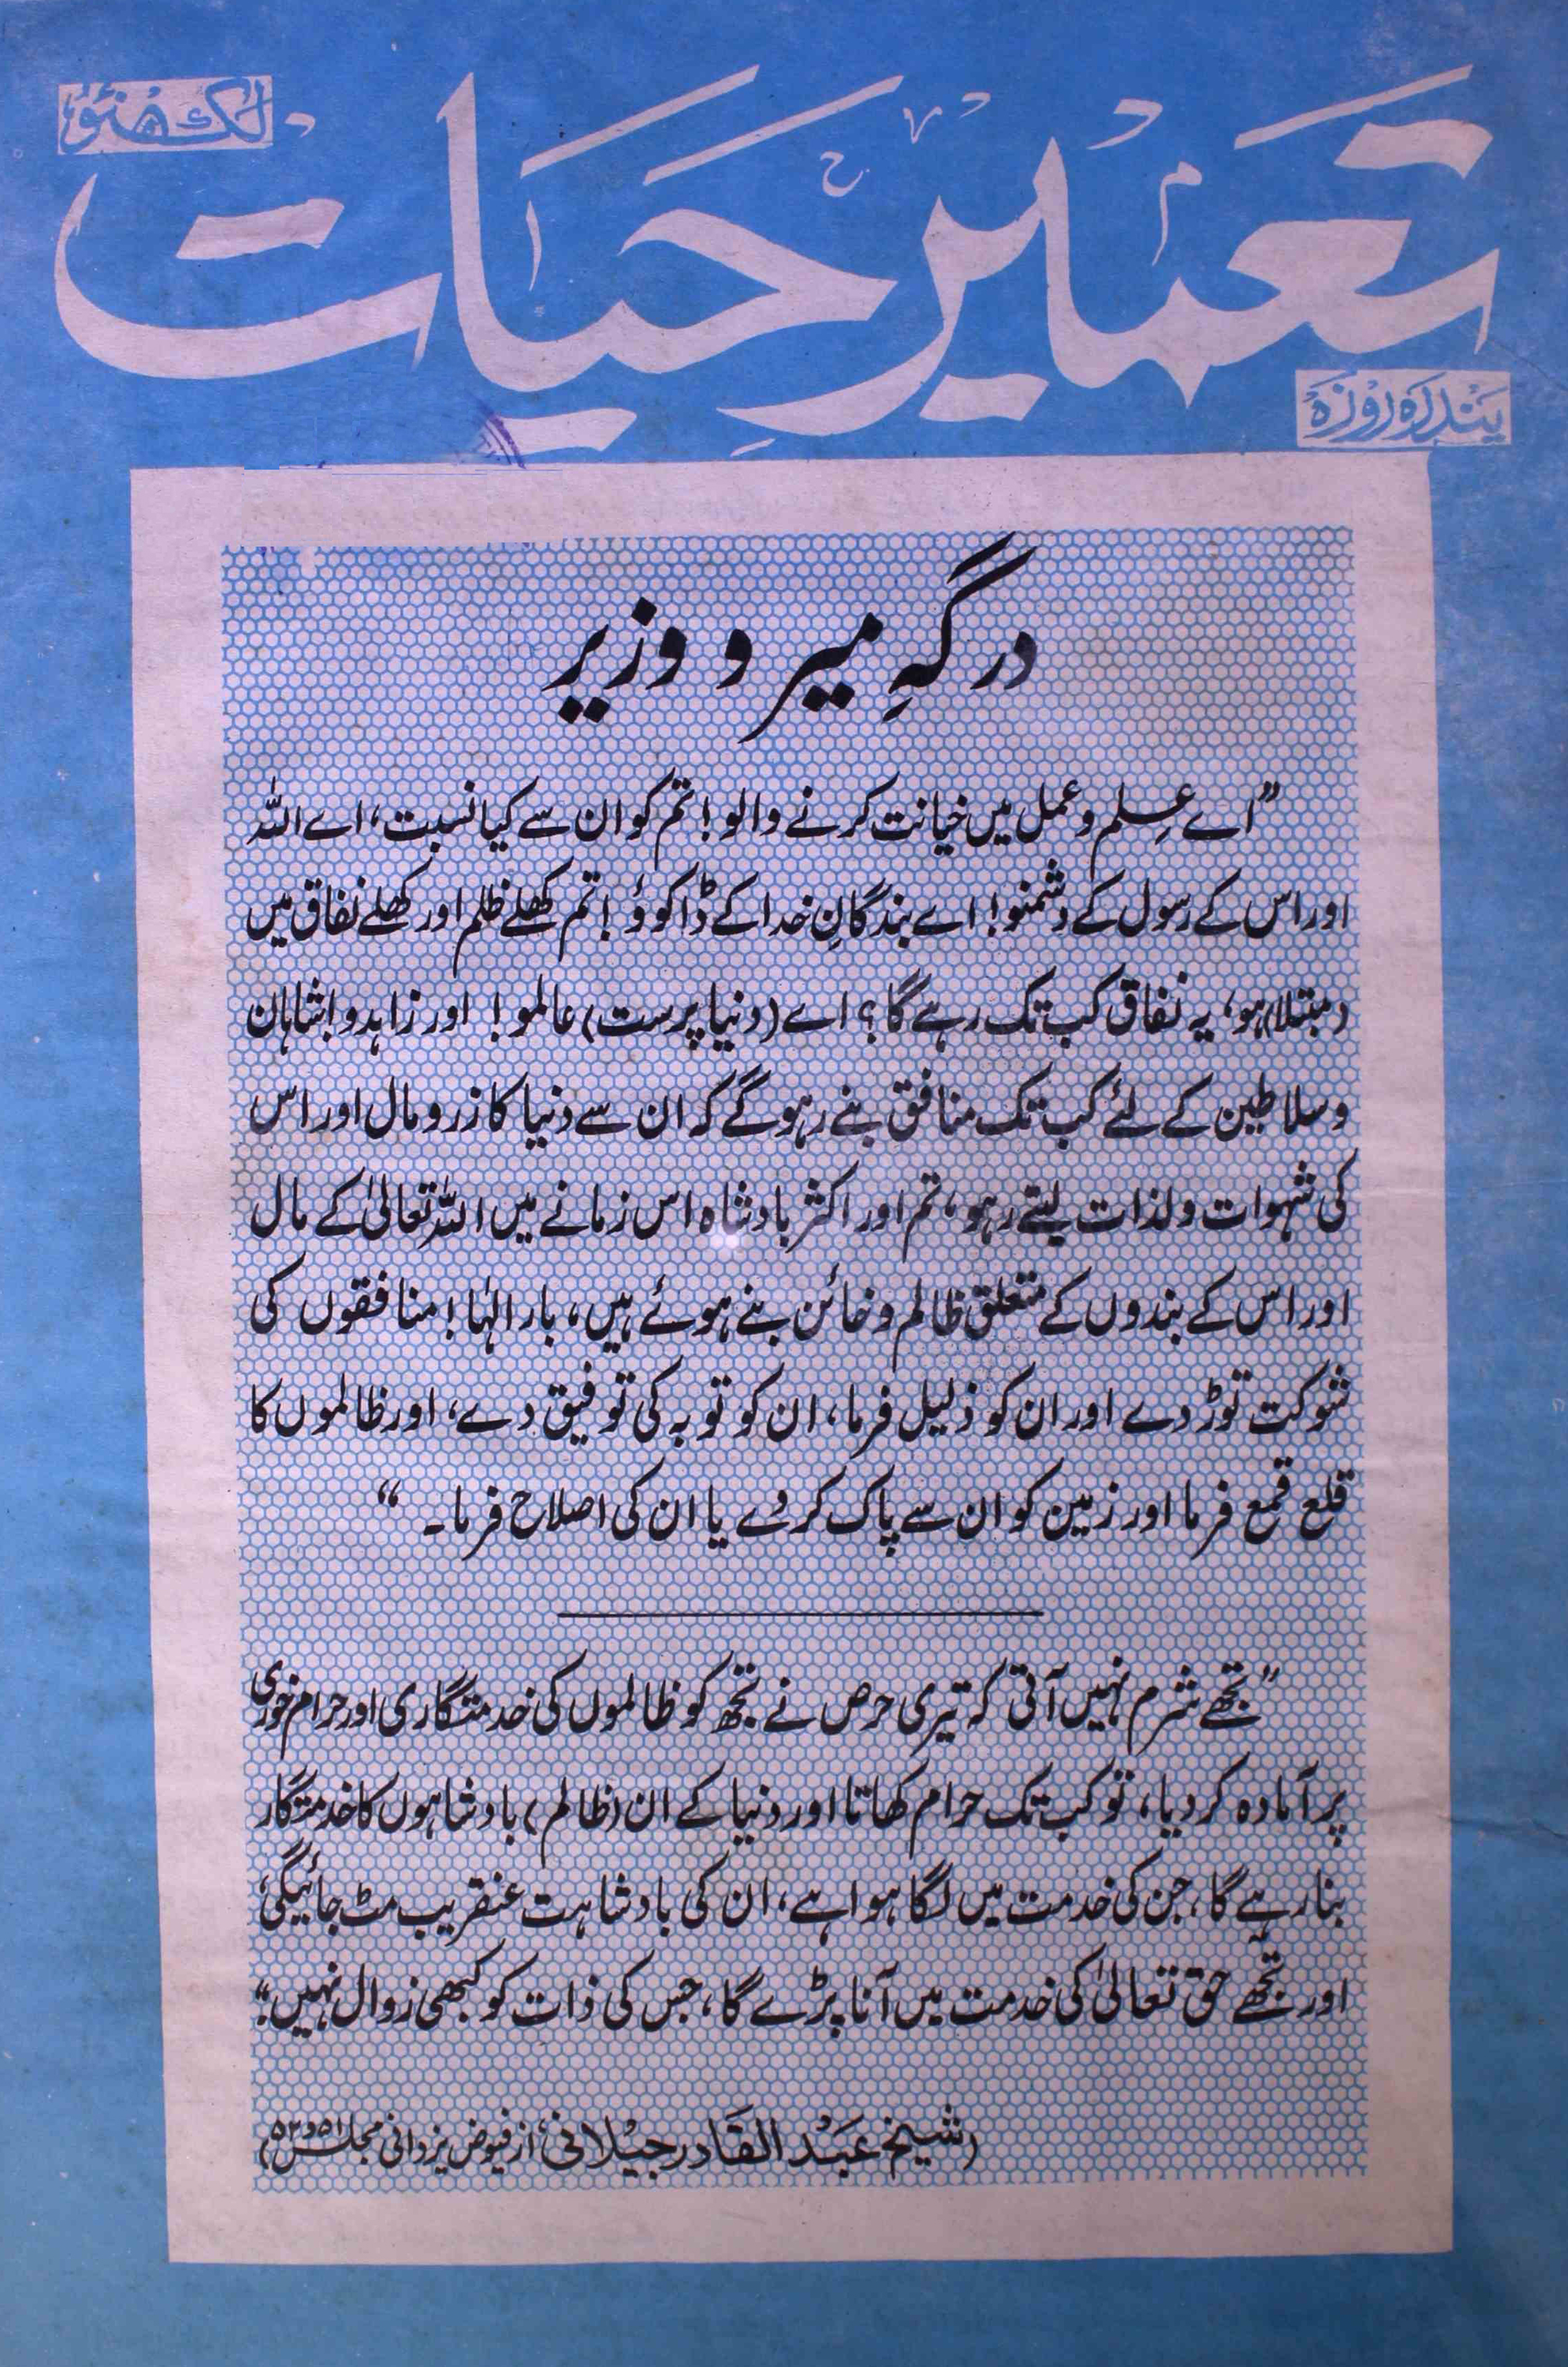 لکھنؤ
تعمیر حیات
پندرہ روزہ
درگہِ میر و وزیر
”اے علم و عمل میں خیانت کرنے والو! تم کو ان سے کیا نسبت، اے اللہ
اور اس کے رسول کے دشمنو! اے بندگانِ خدا کے ڈاکوؤ! تم کھلے ظلم اور کھلے نفاق میں
(مبتلا) ہو، یہ نفاق کب تک رہے گا؟ اے (دنیا پرست) عالمو! اور زاہدو! شاہان
و سلاطین کے لئے کب تک منافق بنے رہو گے کہ ان سے دنیا کا زر و مال اور اس
کی شہوات و لذات لیتے رہو، تم اور اکثر بادشاہ اس زمانے میں اللہ تعالیٰ کے مال
اور اس کے بندوں کے متعلق ظالم و خائن بنے ہوئے ہیں، بار الٰہا! منافقوں کی
شوکت توڑ دے اور ان کو ذلیل فرما، ان کو توبہ کی توفیق دے، اور ظالموں کا
قلع قمع فرما اور زمین کو ان سے پاک کر دے یا ان کی اصلاح فرما۔“
”تجھے شرم نہیں آتی کہ تیری حرص نے تجھ کو ظالموں کی خدمتگاری اور حرام خوری
پر آمادہ کر دیا، تو کب تک حرام کھاتا اور دنیا کے ان (ظالم) بادشاہوں کا خدمتگار
بنا رہے گا، جن کی خدمت میں لگا ہوا ہے، ان کی بادشاہت عنقریب مٹ جائیگی،
اور تجھے حق تعالیٰ کی خدمت میں آنا پڑے گا، جس کی ذات کو کبھی زوال نہیں۔“
(شیخ عبد القادر جیلانیؒ از فیوض یزدانی مجلس ۵۱ و ۵۲)